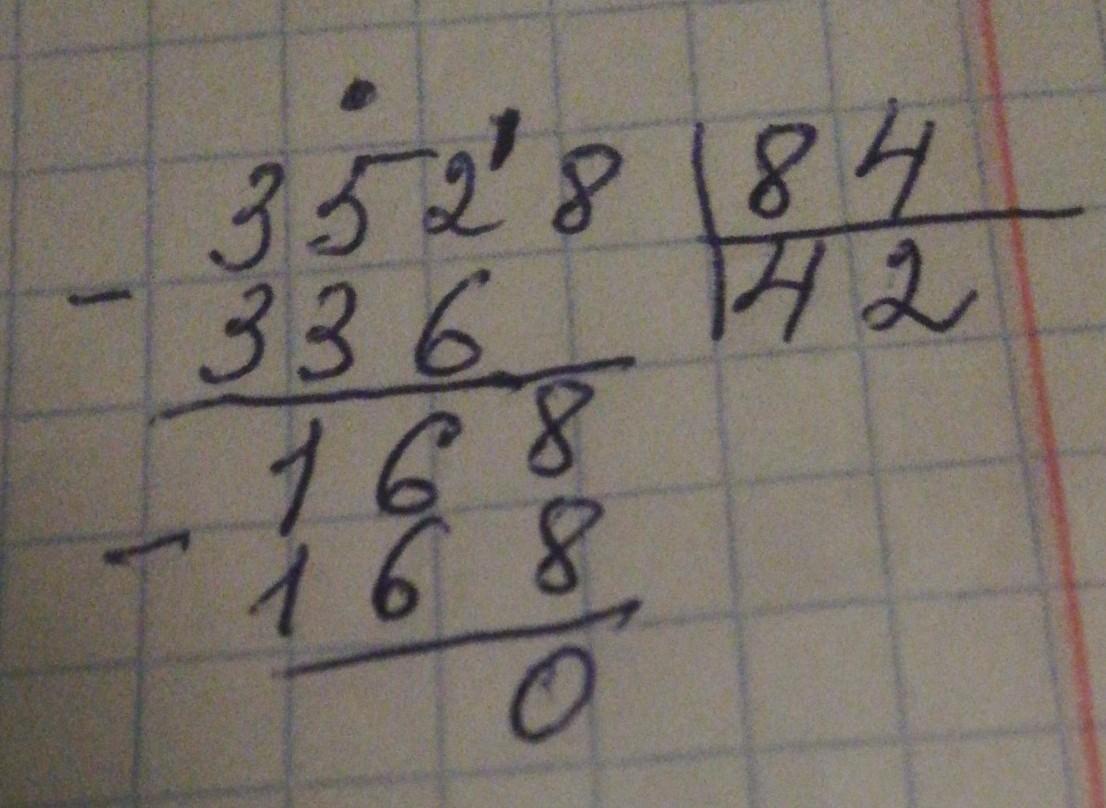 3528 84
- 336 42
168
- 168
0